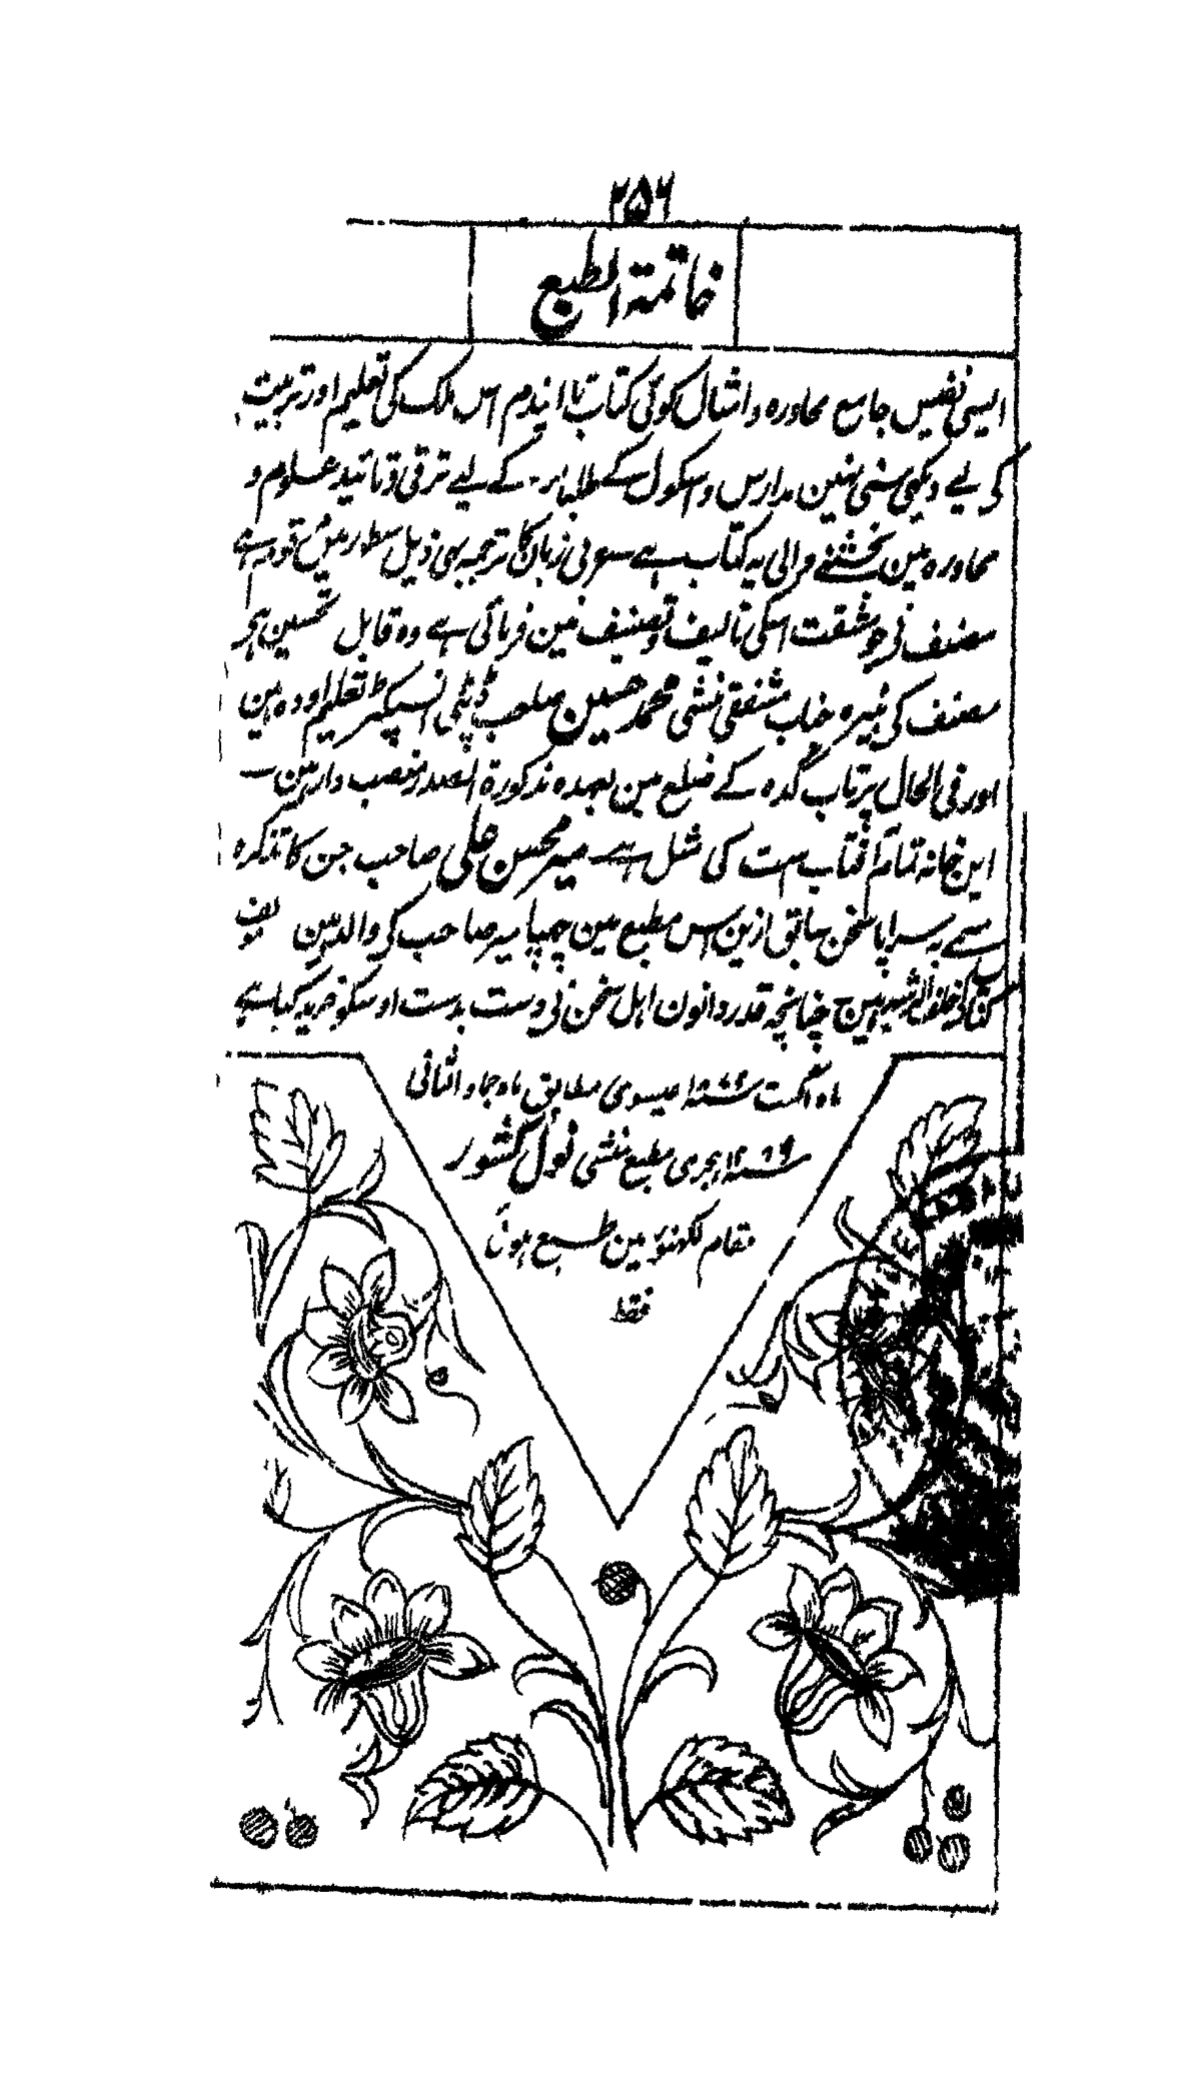 ۲۵۶
خاتمۃ الطبع
ایسی نفیس جامع محاورہ و امثال کوئی کتاب تا ایندم اس ملک کی تعلیم اور تربیت
کی لیے دیکھی سنی نہین مدارس و اسکول کے طلبا کے لیے ترقی و تائید علوم و
محاورہ مین بخشنے والی یہ کتاب ہے عربی زبان کا ترجمہ بھی ذیل سطور مین مرقوم ہے
مصنف نی جو مشقت اسکی تالیف و تصنیف مین فرمائی ہے وہ قابل تحسین ہی
مصنف کی نبیرہ جناب مشفقی منشی محمد حسین صاحب ڈپٹی انسپکٹر تعلیم اودہ ہین
اور فی الحال پرتاب گدہ کے ضلع مین بعہدہ مذکورۃ الصدر منصب دار ہین ۔
این خانہ تمام آفتاب ست کی مثل ہے ۔ میر محسن علی صاحب جن کا تذکرہ
سراپا سخن سابق ازین اس مطبع مین چھپا میر صاحب کی والد ہین
کی خلف الرشید ہین چنانچہ قدردانون اہل سخن نی دست بدست اوسکو خرید کیا ہے
ماہ اگست سنہ ۱۸ عیسوی مطابق ماہ جماد الثانی
سنہ ۱۲ ہجری مطبع منشی نول کشور
مقام لکھنؤ مین طبع ہوئی
فقط